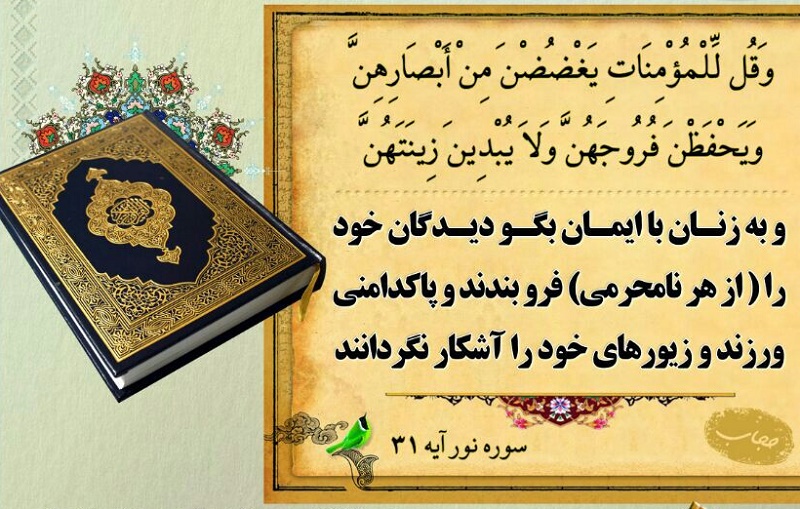 وَقُل لِّلْمُؤْمِنَاتِ يَغْضُضْنَ مِنْ أَبْصَارِهِنَّ
وَيَحْفَظْنَ فُرُوجَهُنَّ وَلَا يُبْدِينَ زِينَتَهُنَّ
و به زنــان با ایمــان بگــو دیــدگان خود
را ( از هر نامحرمی) فرو بندند و پاکدامنی
ورزند و زیورهای خود را آشکار نگردانند
سوره نور آیه ۳۱
حجاب